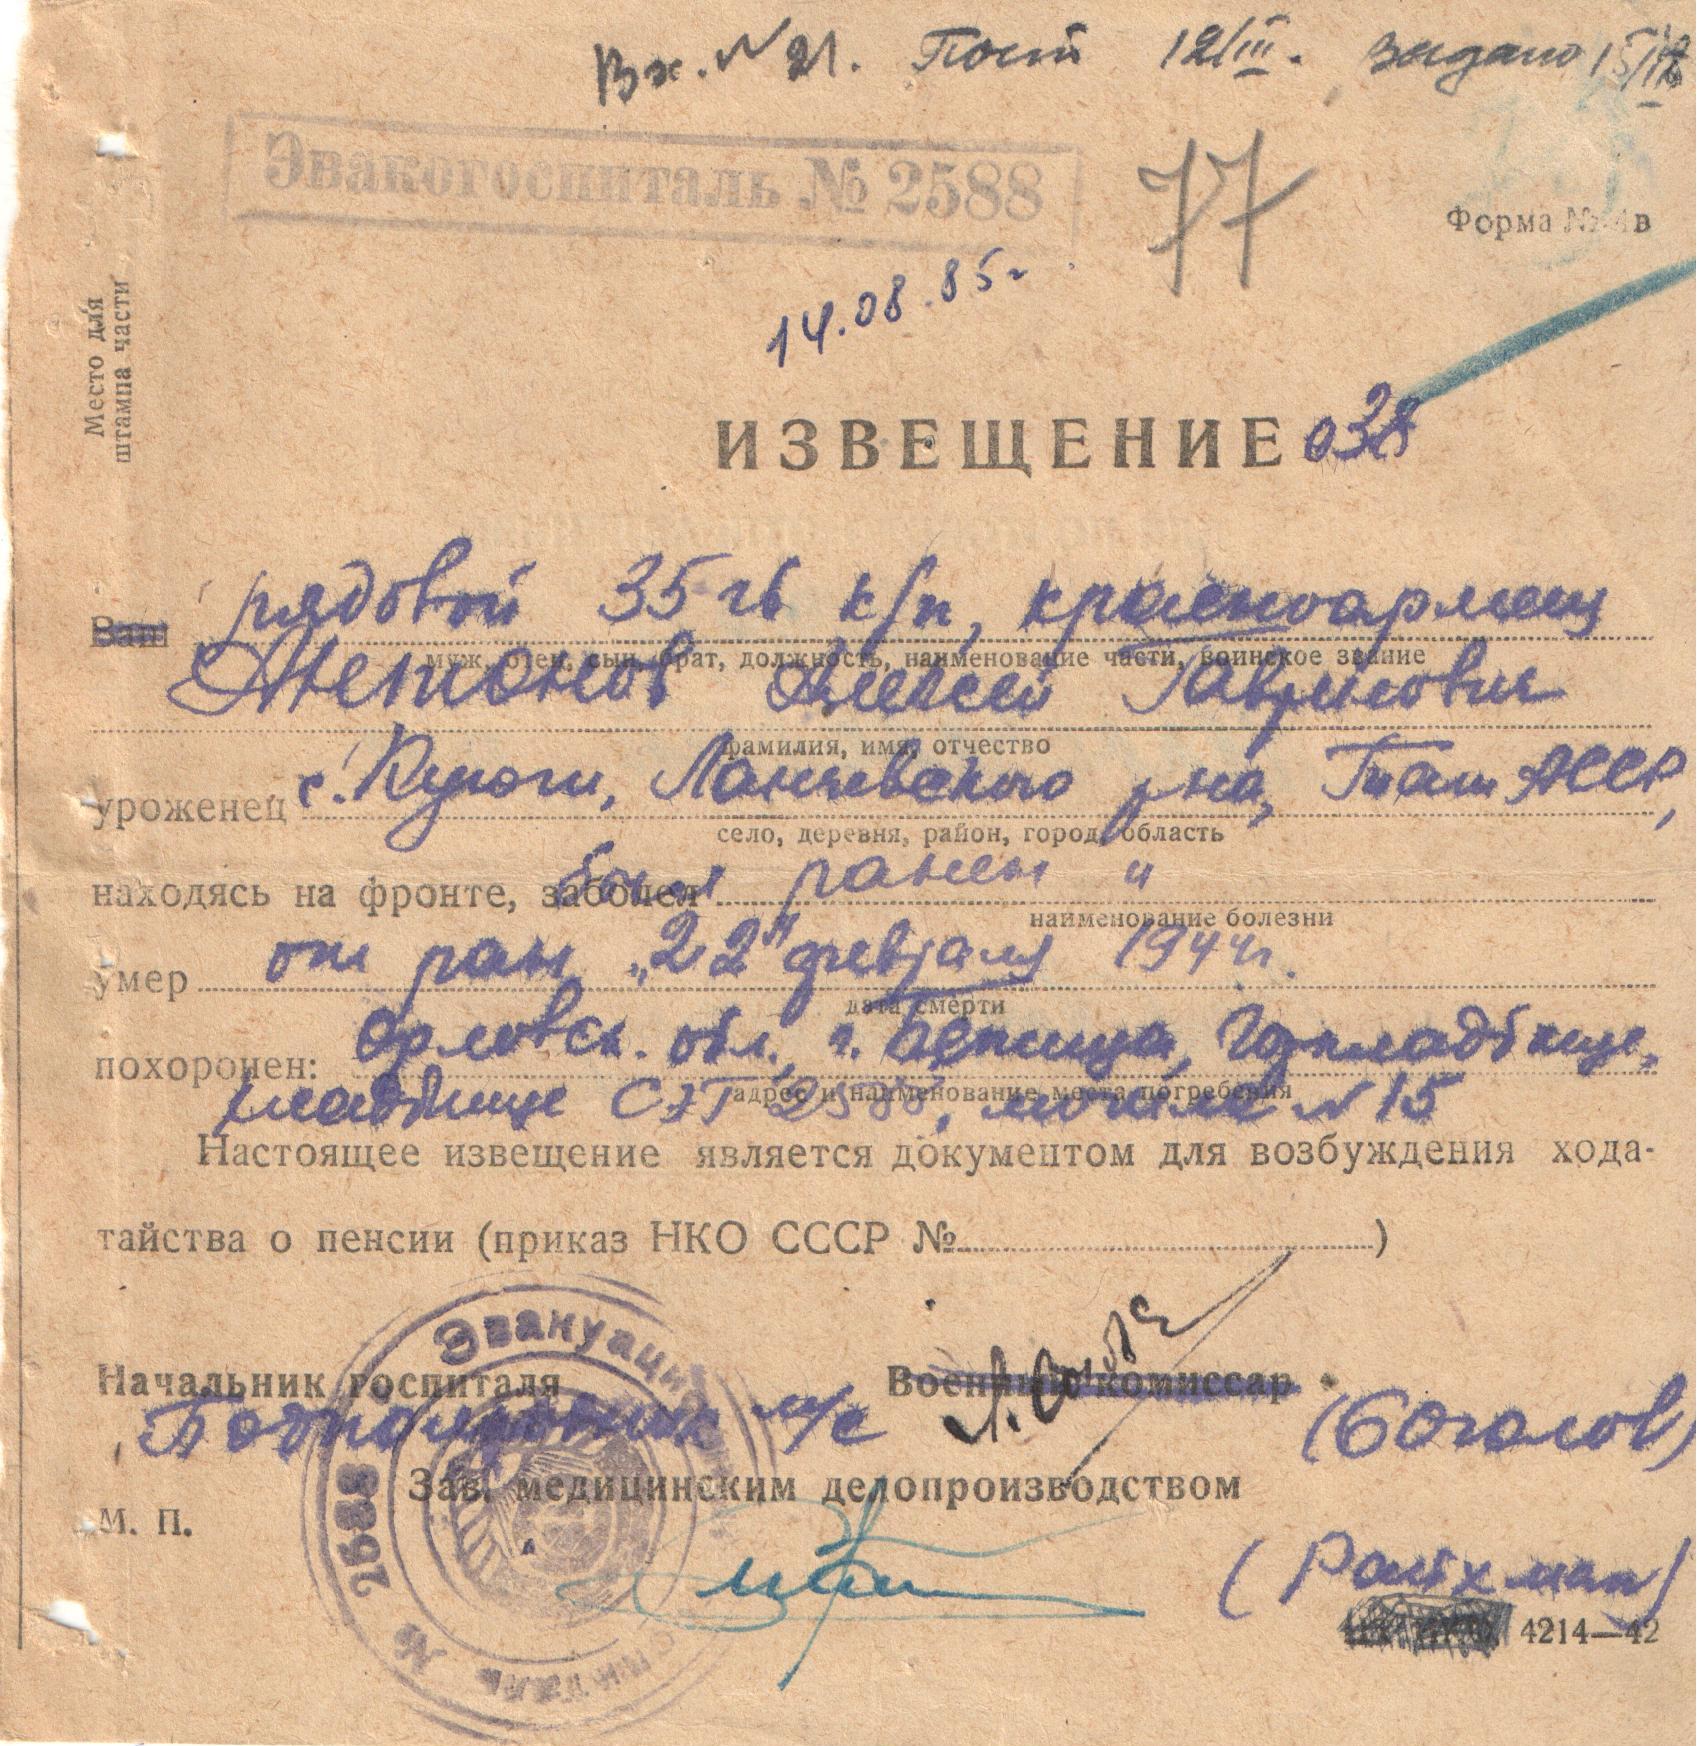 Вх. № 21. Пост 12/III. выдано 15/III
Эвакогоспиталь № 2588
77
Форма № 4в
14.08.85г
Место для
штампа части
ИЗВЕЩЕНИЕ 038
Ваш рядовой 35 гв к/п, красноармеец
муж, отец, сын, брат, должность, наименование части, воинское звание
Антонов Алексей Гаврилович
фамилия, имя, отчество
уроженец с. Кулюги, р-на, Тат АССР,
село, деревня, район, город, область
находясь на фронте, заболел был ранен и
наименование болезни
умер от ран „22" февраля 1944 г.
дата смерти
похоронен: Орловск. обл., г. кладбище,
адрес и наименование места погребения
кладбище СЭГ 2588, могила № 15
Настоящее извещение является документом для возбуждения хода-
тайства о пенсии (приказ НКО СССР № )
Начальник госпиталя Военный комиссар
Подполковник м/с (Боголов)
Зав. медицинским делопроизводством
М. П.
(Райхман)
4214—42
Эвакуацион госпиталь № 2588